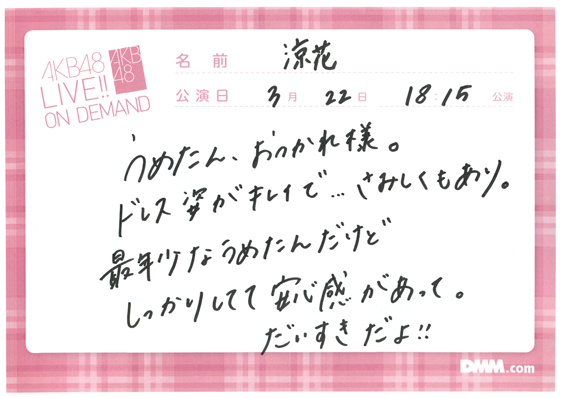 AKB48
LIVE!!
ON DEMAND
AKB
48
名前 涼花
公演日 3月 22日 18:15 公演
うめたん、おつかれ様。
ドレス姿がキレイで…さみしくもあり。
最年少なうめたんだけど
しっかりしてて安心感があって。
だいすきだよ!!
DMM.com